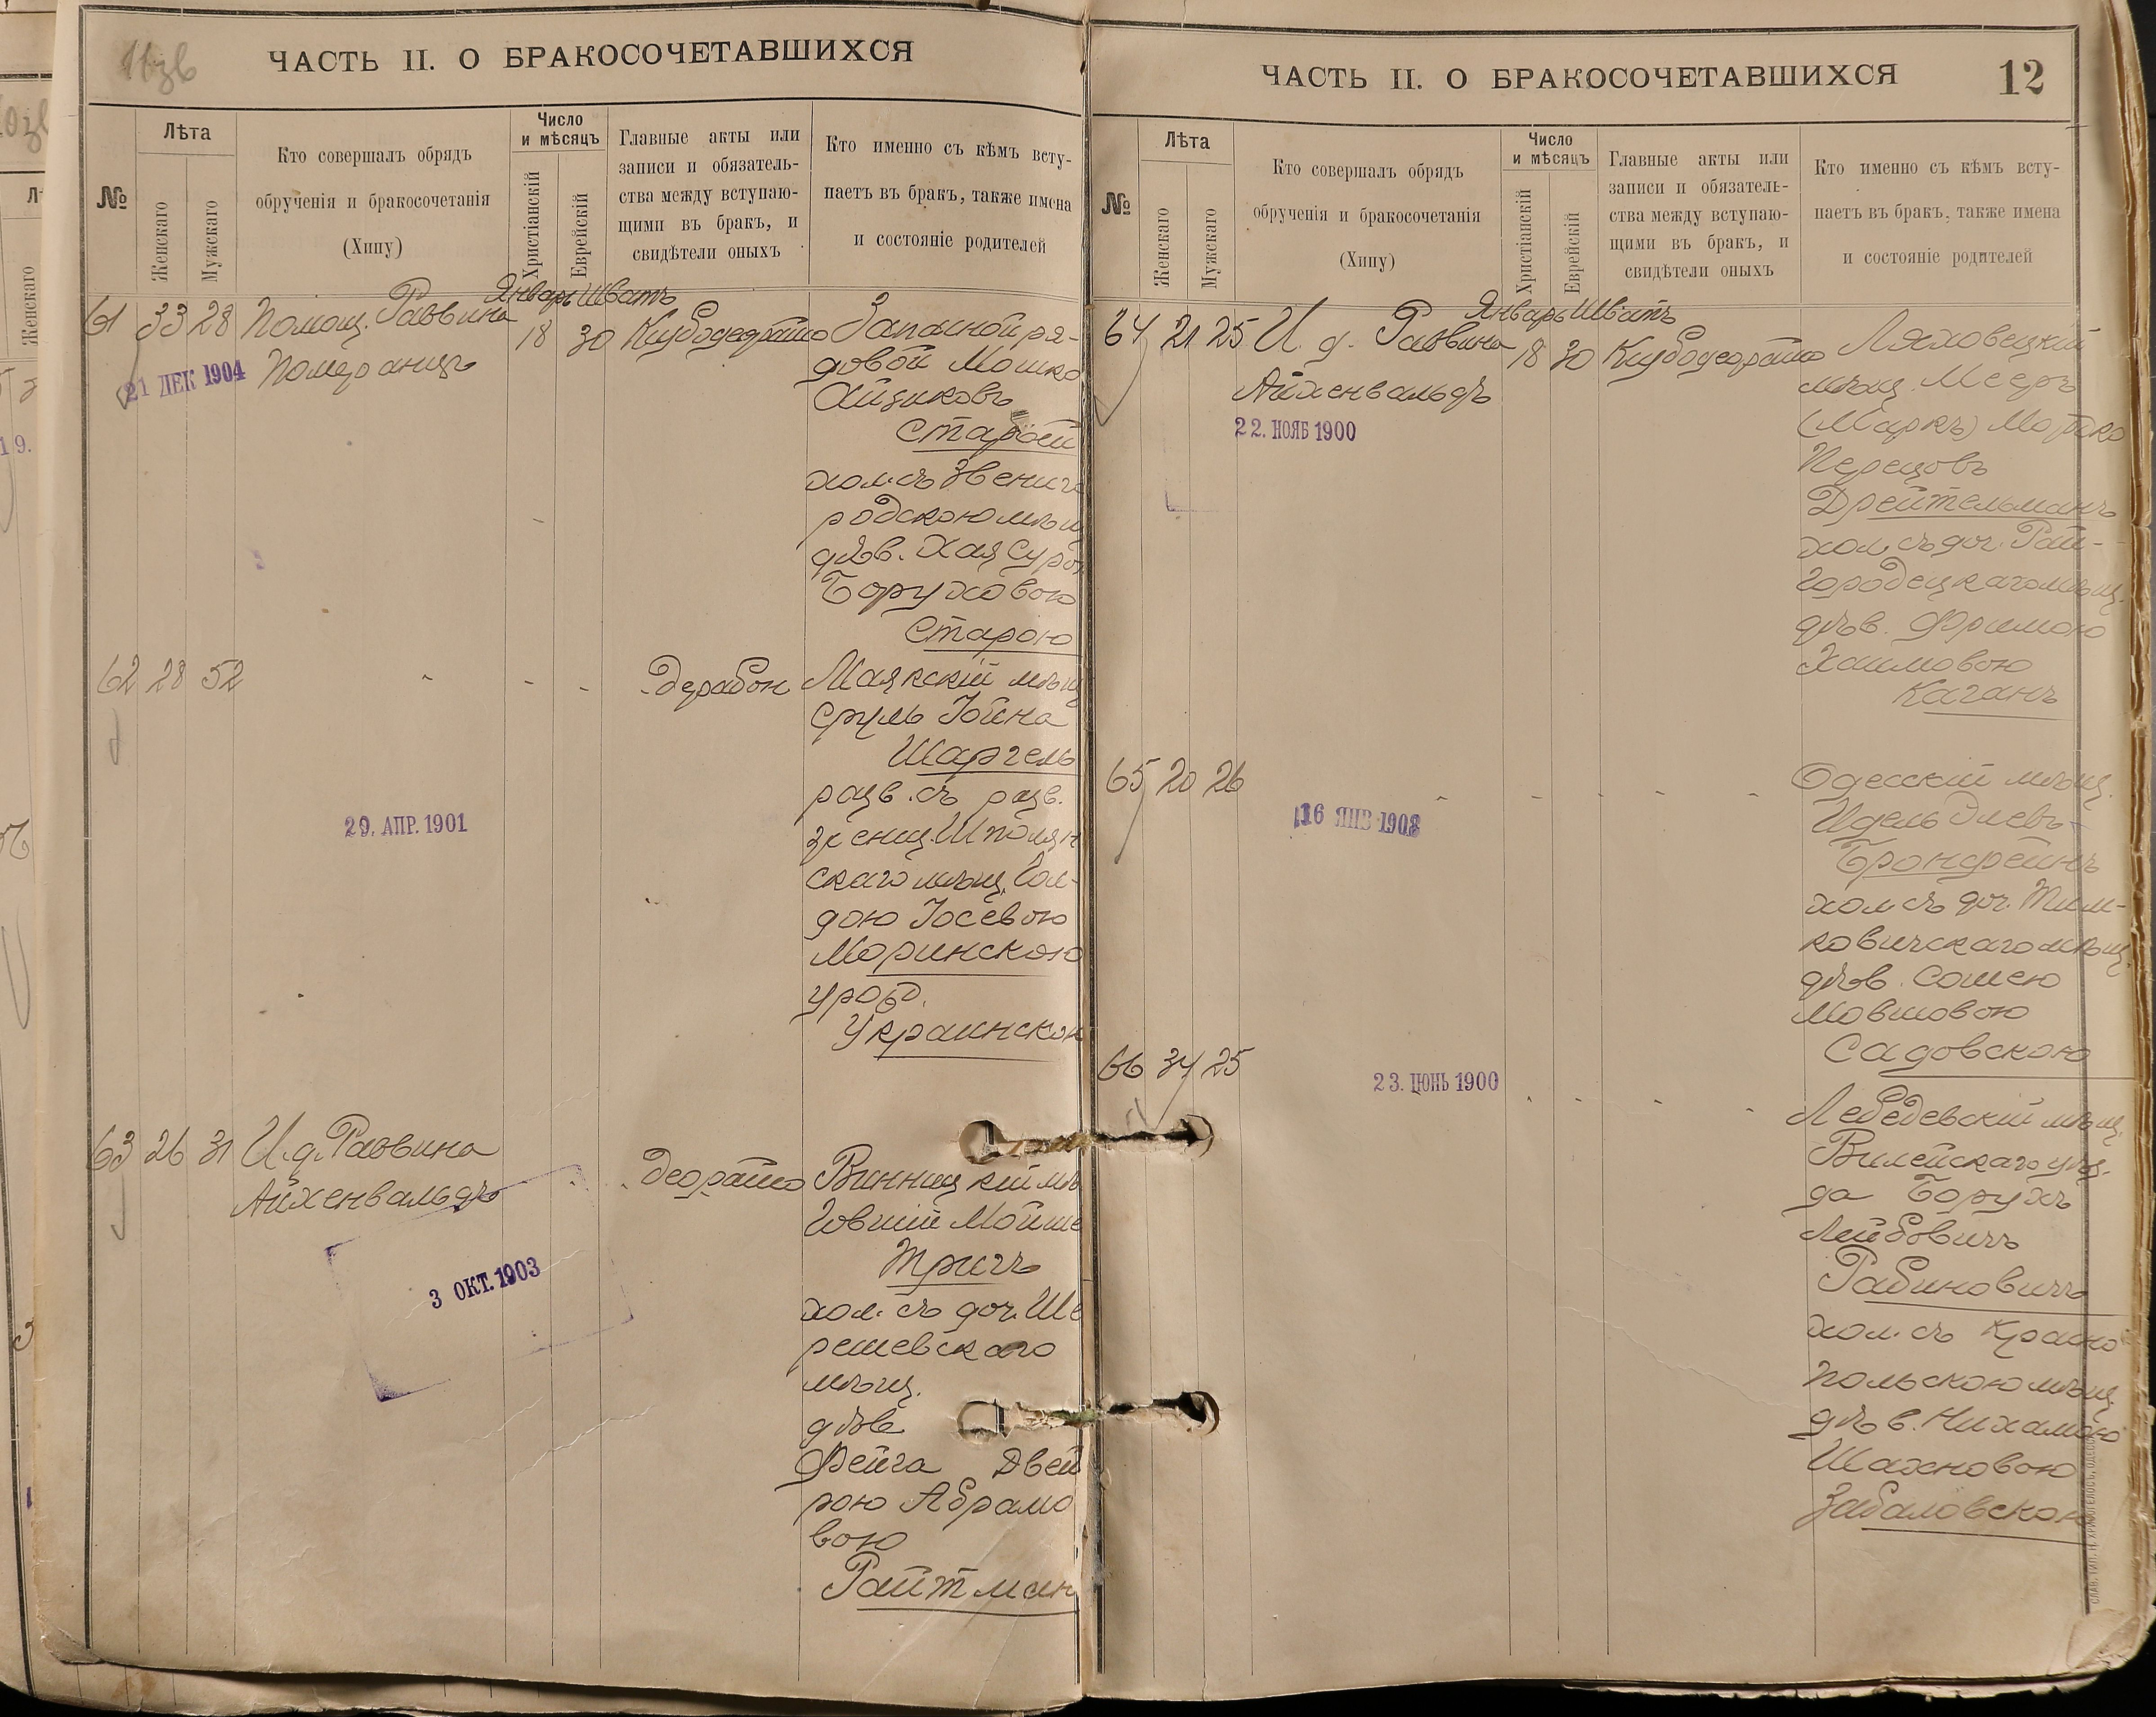 11зв
ЧАСТЬ II. О БРАКОСОЧЕТАВШИХСЯ
№
Лѣта
Женскаго
Мужскаго
Кто совершалъ обрядъ
обрученія и бракосочетанія
(Хипу)
Число
и мѣсяцъ
Христіанскій
Еврейскій
Главные акты или
записи и обязатель-
ства между вступаю-
щими въ бракъ, и
свидѣтели оныхъ
Кто именно съ кѣмъ всту-
паетъ въ бракъ, также имена
и состояніе родителей
Январь Шватъ
61 33 28 Помощ. Раввина 18 30
Померанцъ
21 ДЕК 1904
Запасной ря-
довой Мошко
Айзиковъ
Старой
хол. съ Звениго
родскою мѣщ
дѣв. Хая Сура
Боруховою
Старою
62 28 52
29. АПР. 1901
Маякскій мѣщ
Сруль Іойна
Шаргель
разв. съ разв.
женщ. Шполян
скаго мѣщ. Гол-
дою Іосевою
Моринскою
урожд.
Украинскою
63 26 31 И. д. Раввина
Айхенвальдъ
3 ОКТ. 1903
Винницкій мѣ
Говшій Мойше
Тричъ
хол. съ доч. Ше
решевскаго
мѣщ.
дѣв
Фейга Двей
рою Абрамо
вою
Райтман
ЧАСТЬ II. О БРАКОСОЧЕТАВШИХСЯ
12
№
Лѣта
Женскаго
Мужскаго
Кто совершалъ обрядъ
обрученія и бракосочетанія
(Хипу)
Число
и мѣсяцъ
Христіанскій
Еврейскій
Главные акты или
записи и обязатель-
ства между вступаю-
щими въ бракъ, и
свидѣтели оныхъ
Кто именно съ кѣмъ всту-
паетъ въ бракъ, также имена
и состояніе родителей
Январь Шватъ
64 21 25 И. д. Раввина 18 30
Айхенвальдъ
22. НОЯБ 1900
Ляховецкій
мѣщ. Мееръ
(Маркъ) Мордко
Перецовъ
Дрейтельманъ
хол. съ доч. Рай-
городецкаго мѣщ.
дѣв. Фримою
Хаимовою
Каганъ
65 20 26
16 ЯНВ 1908
Одесскій мѣщ.
Идель Элевъ
Бронфейнъ
хол съ доч. Тим-
ковичскаго мѣщ.
дѣв. Сошею
Мовшовою
Садовскою
66 34 25
23. ІЮНЬ 1900
Лебедевскій мѣщ.
Вилейскаго уѣз-
да Борухъ
Лейбовичъ
Рабиновичъ
хол. съ Красно
польскою мѣщ.
дѣв. Нихамою
Шахновою
Забаловскою